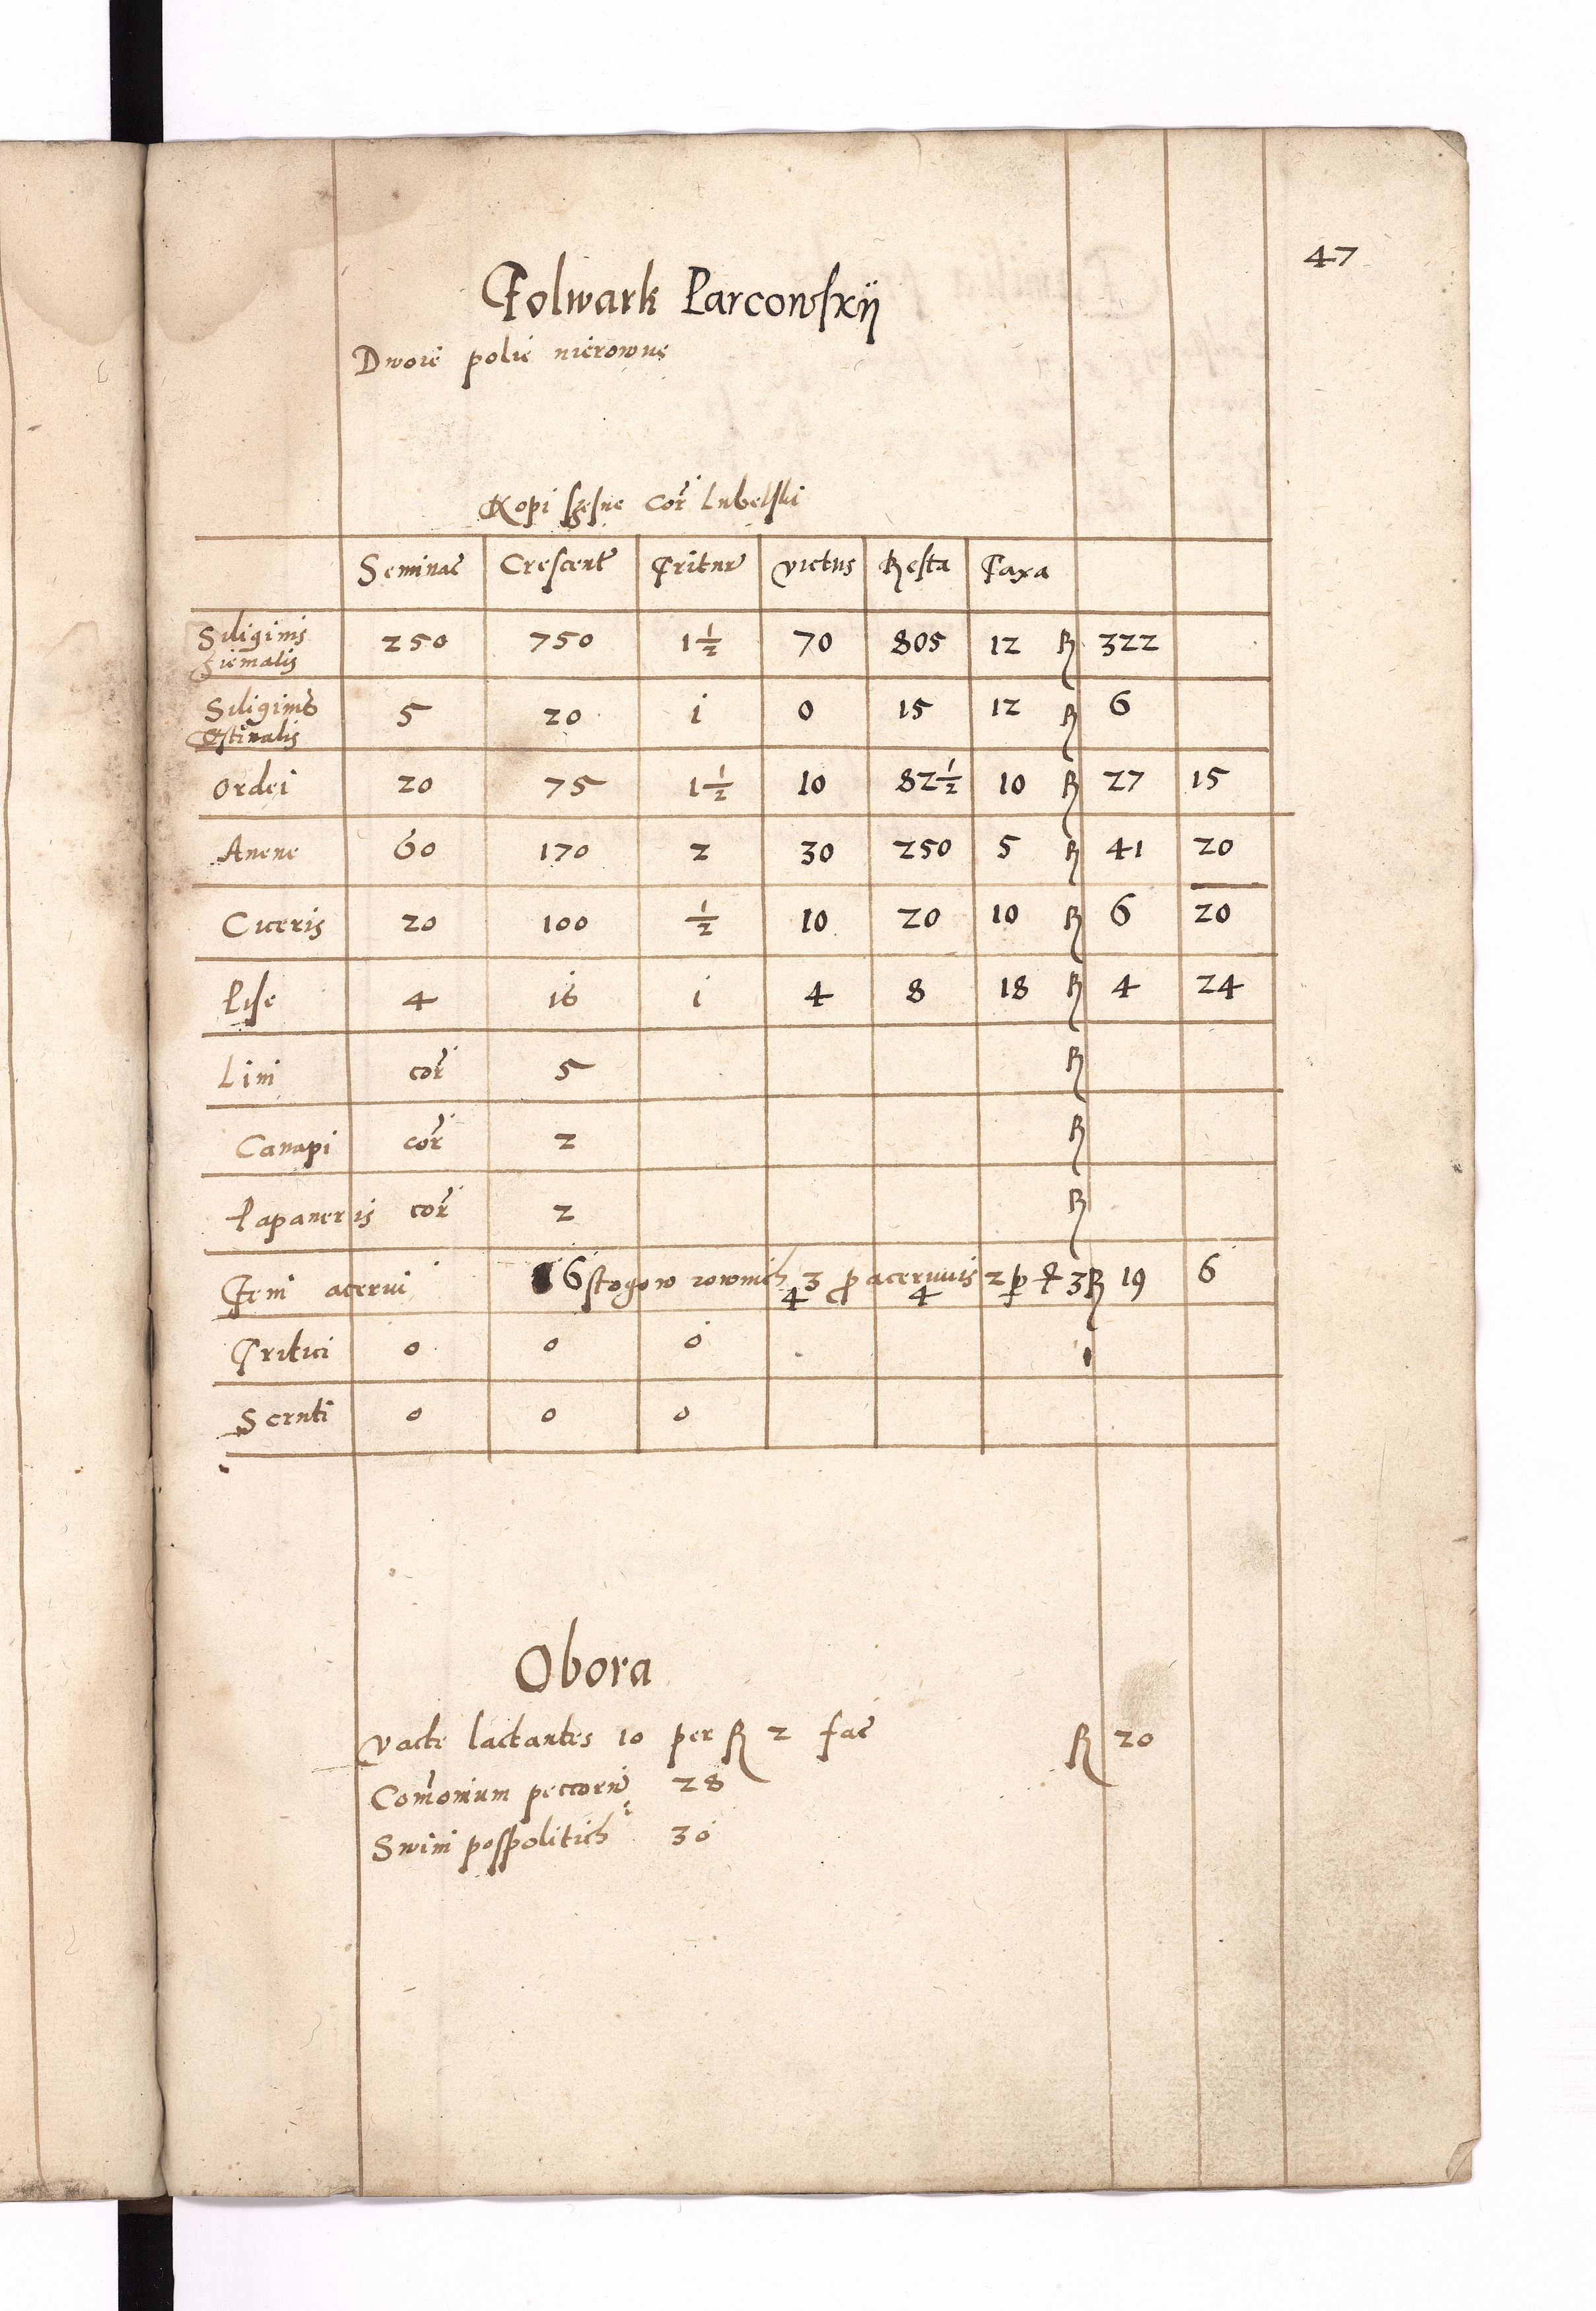 47
Folwark Parcowskij
Dwoie polie nierowne
Kopi szesne cor Lubelski
Seminat Crescent Tritur victus Resta Taxa
Siliginis hiemalis 250 750 1½ 70 805 12 R 322
Siliginis Estiualis 5 20 i 0 15 12 R 6
Ordei 20 75 1½ 10 82½ 10 R 27 15
Auene 60 170 2 30 250 5 R 41 20
Ciceris 20 100 ½ 10 20 10 R 6 20
Pise 4 16 i 4 8 18 R 4 24
Lini cor 5 R
Canapi cor 2 R
Papaueris cor 2 R
Feni acerui 6 stogow rownich 3 4 pro aceruuis 4 2 3 R 19 6
Tritici 0 0 0
Scruti 0 0 0
Obora
Vacce lactantes 10 per R 2 fac R 20
Com̄onium peccorū 28
Swini pospolitich 30